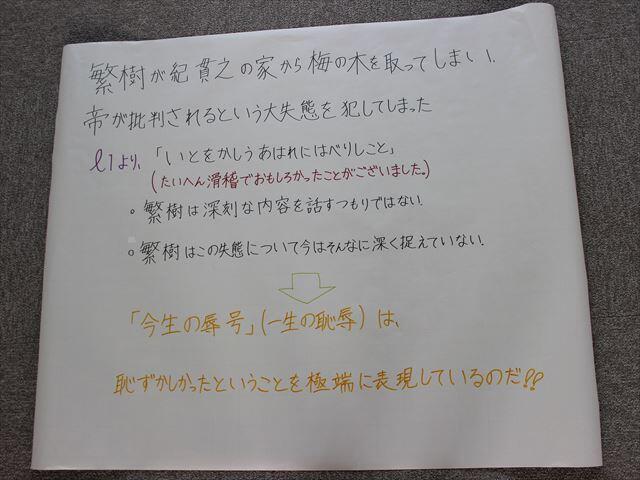 繁樹が紀貫之の家から梅の木を取ってしまい、
帝が批判されるという大失態を犯してしまった
l1より、「いとをかしうあはれにはべりしこと」
(たいへん滑稽でおもしろかったことがございました。)
。繁樹は深刻な内容を話すつもりではない。
。繁樹はこの失態について今はそんなに深く捉えていない。
「今生の辱号」(一生の恥辱)は、
恥ずかしかったということを極端に表現しているのだ!!